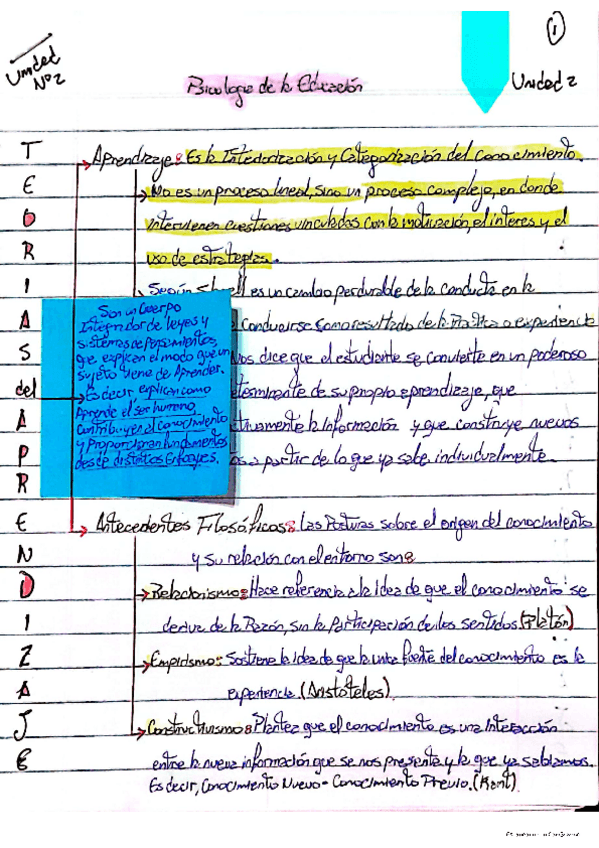 Unidad
Nº2
1
Unidad 2
Psicología de la Educación
TEORIAS del APRENDIZAJE
Aprendizaje: Es la Interiorización y Categorización del conocimiento.
No es un proceso lineal, sino un proceso complejo, en donde
intervienen cuestiones vinculadas con la motivación, el interes y el
uso de estrategias.
Según es un cambio perdurable de la conducta en la
conducirse como resultado de la Práctica o experiencia
Nos dice que el estudiante se convierte en un poderoso
determinante de su propio aprendizaje, que
activamente la información y que construye nuevos
a partir de lo que ya sabe individualmente.
Son un Cuerpo
Integrador de leyes y
sistemas de pensamientos,
que explican el modo que un
sujeto tiene de Aprender.
Es decir, explican como
Aprende el ser humano,
contribuyen al conocimiento
y Proporcionan fundamentos
desde distintos Enfoques.
Antecedentes Filosóficos: Las Posturas sobre el origen del conocimiento
y su relación con el entorno son:
Relacionismo: Hace referencia a la idea de que el conocimiento se
deriva de la Razón, sin la Participación de los sentidos (Platón)
Empirismo: Sostiene la idea de que la unica fuente del conocimiento es la
experiencia. (Aristoteles)
Constructivismo: Plantea que el conocimiento es una Interacción
entre la nueva información que se nos presenta y lo que ya sabíamos.
Es decir, Conocimiento Nuevo - Conocimiento Previo. (Kant)